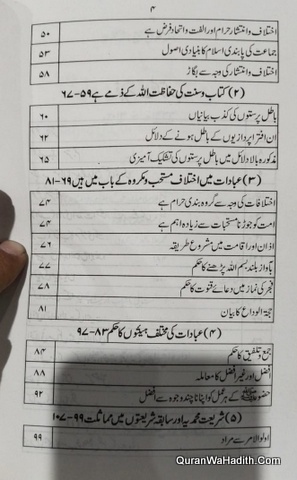 ۴
اختلاف و انتشار حرام اور الفت و اتحاد فرض ہے ۵۰
جماعت کی پابندی اسلام کا بنیادی اصول ۵۳
اختلاف و انتشار کی وجہ سے بگاڑ ۵۸
(۲) کتاب و سنت کی حفاظت اللہ کے ذمے ہے ۵۹-۶۷
باطل پرستوں کی کذب بیانیاں ۶۰
ان افترا پردازیوں کے باطل ہونے کے دلائل ۶۲
مذکورہ بالا دلائل میں باطل پرستوں کی تشکیک آمیزی ۶۵
(۳) عبادات میں اختلاف مستحب و مکروہ کے باب میں ہیں ۶۹-۸۱
اختلافات کی وجہ سے گروہ بندی حرام ہے ۷۴
امت کو جوڑنا مستحبات سے زیادہ اہم ہے ۷۴
اذان اور اقامت میں مشروع طریقہ ۷۶
بآواز بلند بسم اللہ پڑھنے کا حکم ۷۷
فجر کی نماز میں دعائے قنوت کا حکم ۷۸
حجۃ الوداع کا بیان ۸۱
(۴) عبادات کی مختلف ہیئتوں کا حکم ۸۳-۹۷
جمع و تلفیق کا حکم ۸۴
افضل اور غیر افضل کا معاملہ ۸۸
حضور ﷺ کے ہر عمل کو اپنانا چند وجوہ سے افضل ۹۲
(۵) شریعت محمدیہ اور سابقہ شریعتوں میں مماثلت ۹۹-۱۰۷
اولو الامر سے مراد ۹۹
QuranWaHadith.Com